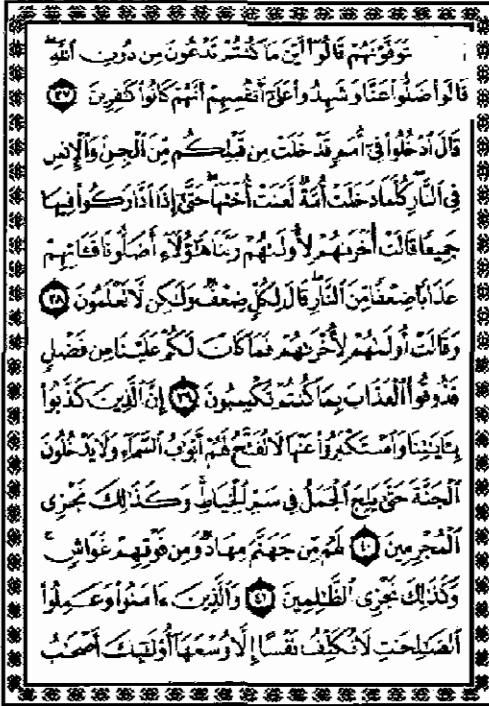 يَتَوَفَّوْنَهُمْ قَالُوٓا۟ أَيْنَ مَا كُنتُمْ تَدْعُونَ مِن دُونِ ٱللَّهِ
قَالُوا۟ ضَلُّوا۟ عَنَّا وَشَهِدُوا۟ عَلَىٰٓ أَنفُسِهِمْ أَنَّهُمْ كَانُوا۟ كَٰفِرِينَ ٣٧
قَالَ ٱدْخُلُوا۟ فِىٓ أُمَمٍ قَدْ خَلَتْ مِن قَبْلِكُم مِّنَ ٱلْجِنِّ وَٱلْإِنسِ
فِى ٱلنَّارِ كُلَّمَا دَخَلَتْ أُمَّةٌ لَّعَنَتْ أُخْتَهَا حَتَّىٰٓ إِذَا ٱدَّارَكُوا۟ فِيهَا
جَمِيعًا قَالَتْ أُخْرَىٰهُمْ لِأُولَىٰهُمْ رَبَّنَا هَٰٓؤُلَآءِ أَضَلُّونَا فَـَٔاتِهِمْ
عَذَابًا ضِعْفًا مِّنَ ٱلنَّارِ قَالَ لِكُلٍّ ضِعْفٌ وَلَٰكِن لَّا تَعْلَمُونَ ٣٨
وَقَالَتْ أُولَىٰهُمْ لِأُخْرَىٰهُمْ فَمَا كَانَ لَكُمْ عَلَيْنَا مِن فَضْلٍ
فَذُوقُوا۟ ٱلْعَذَابَ بِمَا كُنتُمْ تَكْسِبُونَ ٣٩ إِنَّ ٱلَّذِينَ كَذَّبُوا۟
بِـَٔايَٰتِنَا وَٱسْتَكْبَرُوا۟ عَنْهَا لَا تُفَتَّحُ لَهُمْ أَبْوَٰبُ ٱلسَّمَآءِ وَلَا يَدْخُلُونَ
ٱلْجَنَّةَ حَتَّىٰ يَلِجَ ٱلْجَمَلُ فِى سَمِّ ٱلْخِيَاطِ وَكَذَٰلِكَ نَجْزِى
ٱلْمُجْرِمِينَ ٤٠ لَهُم مِّن جَهَنَّمَ مِهَادٌ وَمِن فَوْقِهِمْ غَوَاشٍ
وَكَذَٰلِكَ نَجْزِى ٱلظَّٰلِمِينَ ٤١ وَٱلَّذِينَ ءَامَنُوا۟ وَعَمِلُوا۟
ٱلصَّٰلِحَٰتِ لَا نُكَلِّفُ نَفْسًا إِلَّا وُسْعَهَآ أُو۟لَٰٓئِكَ أَصْحَٰبُ